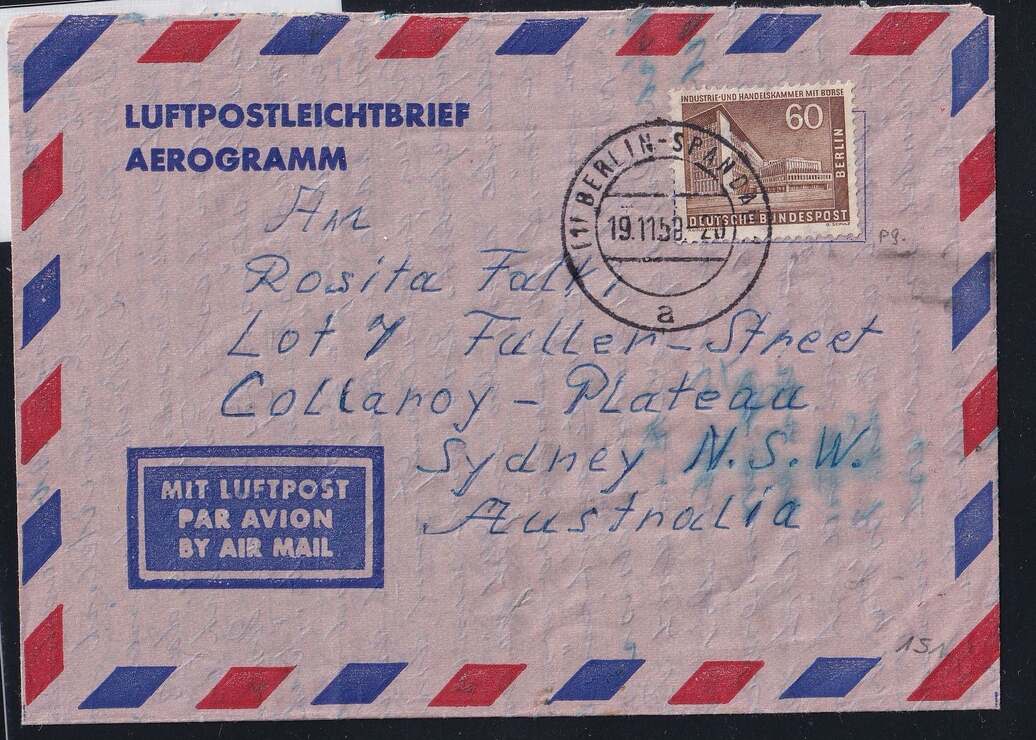 LUFTPOSTLEICHTBRIEF
AEROGRAMM
INDUSTRIE-UND HANDELSKAMMER MIT BÖRSE
60
BERLIN
DEUTSCHE BUNDESPOST
(1) BERLIN-SPANDA
19.11.58.-20
a
pg.
An
Rosita Falk
Lot 7 Fuller-Street
Collaroy - Plateau
Sydney N.S.W.
Australia
MIT LUFTPOST
PAR AVION
BY AIR MAIL